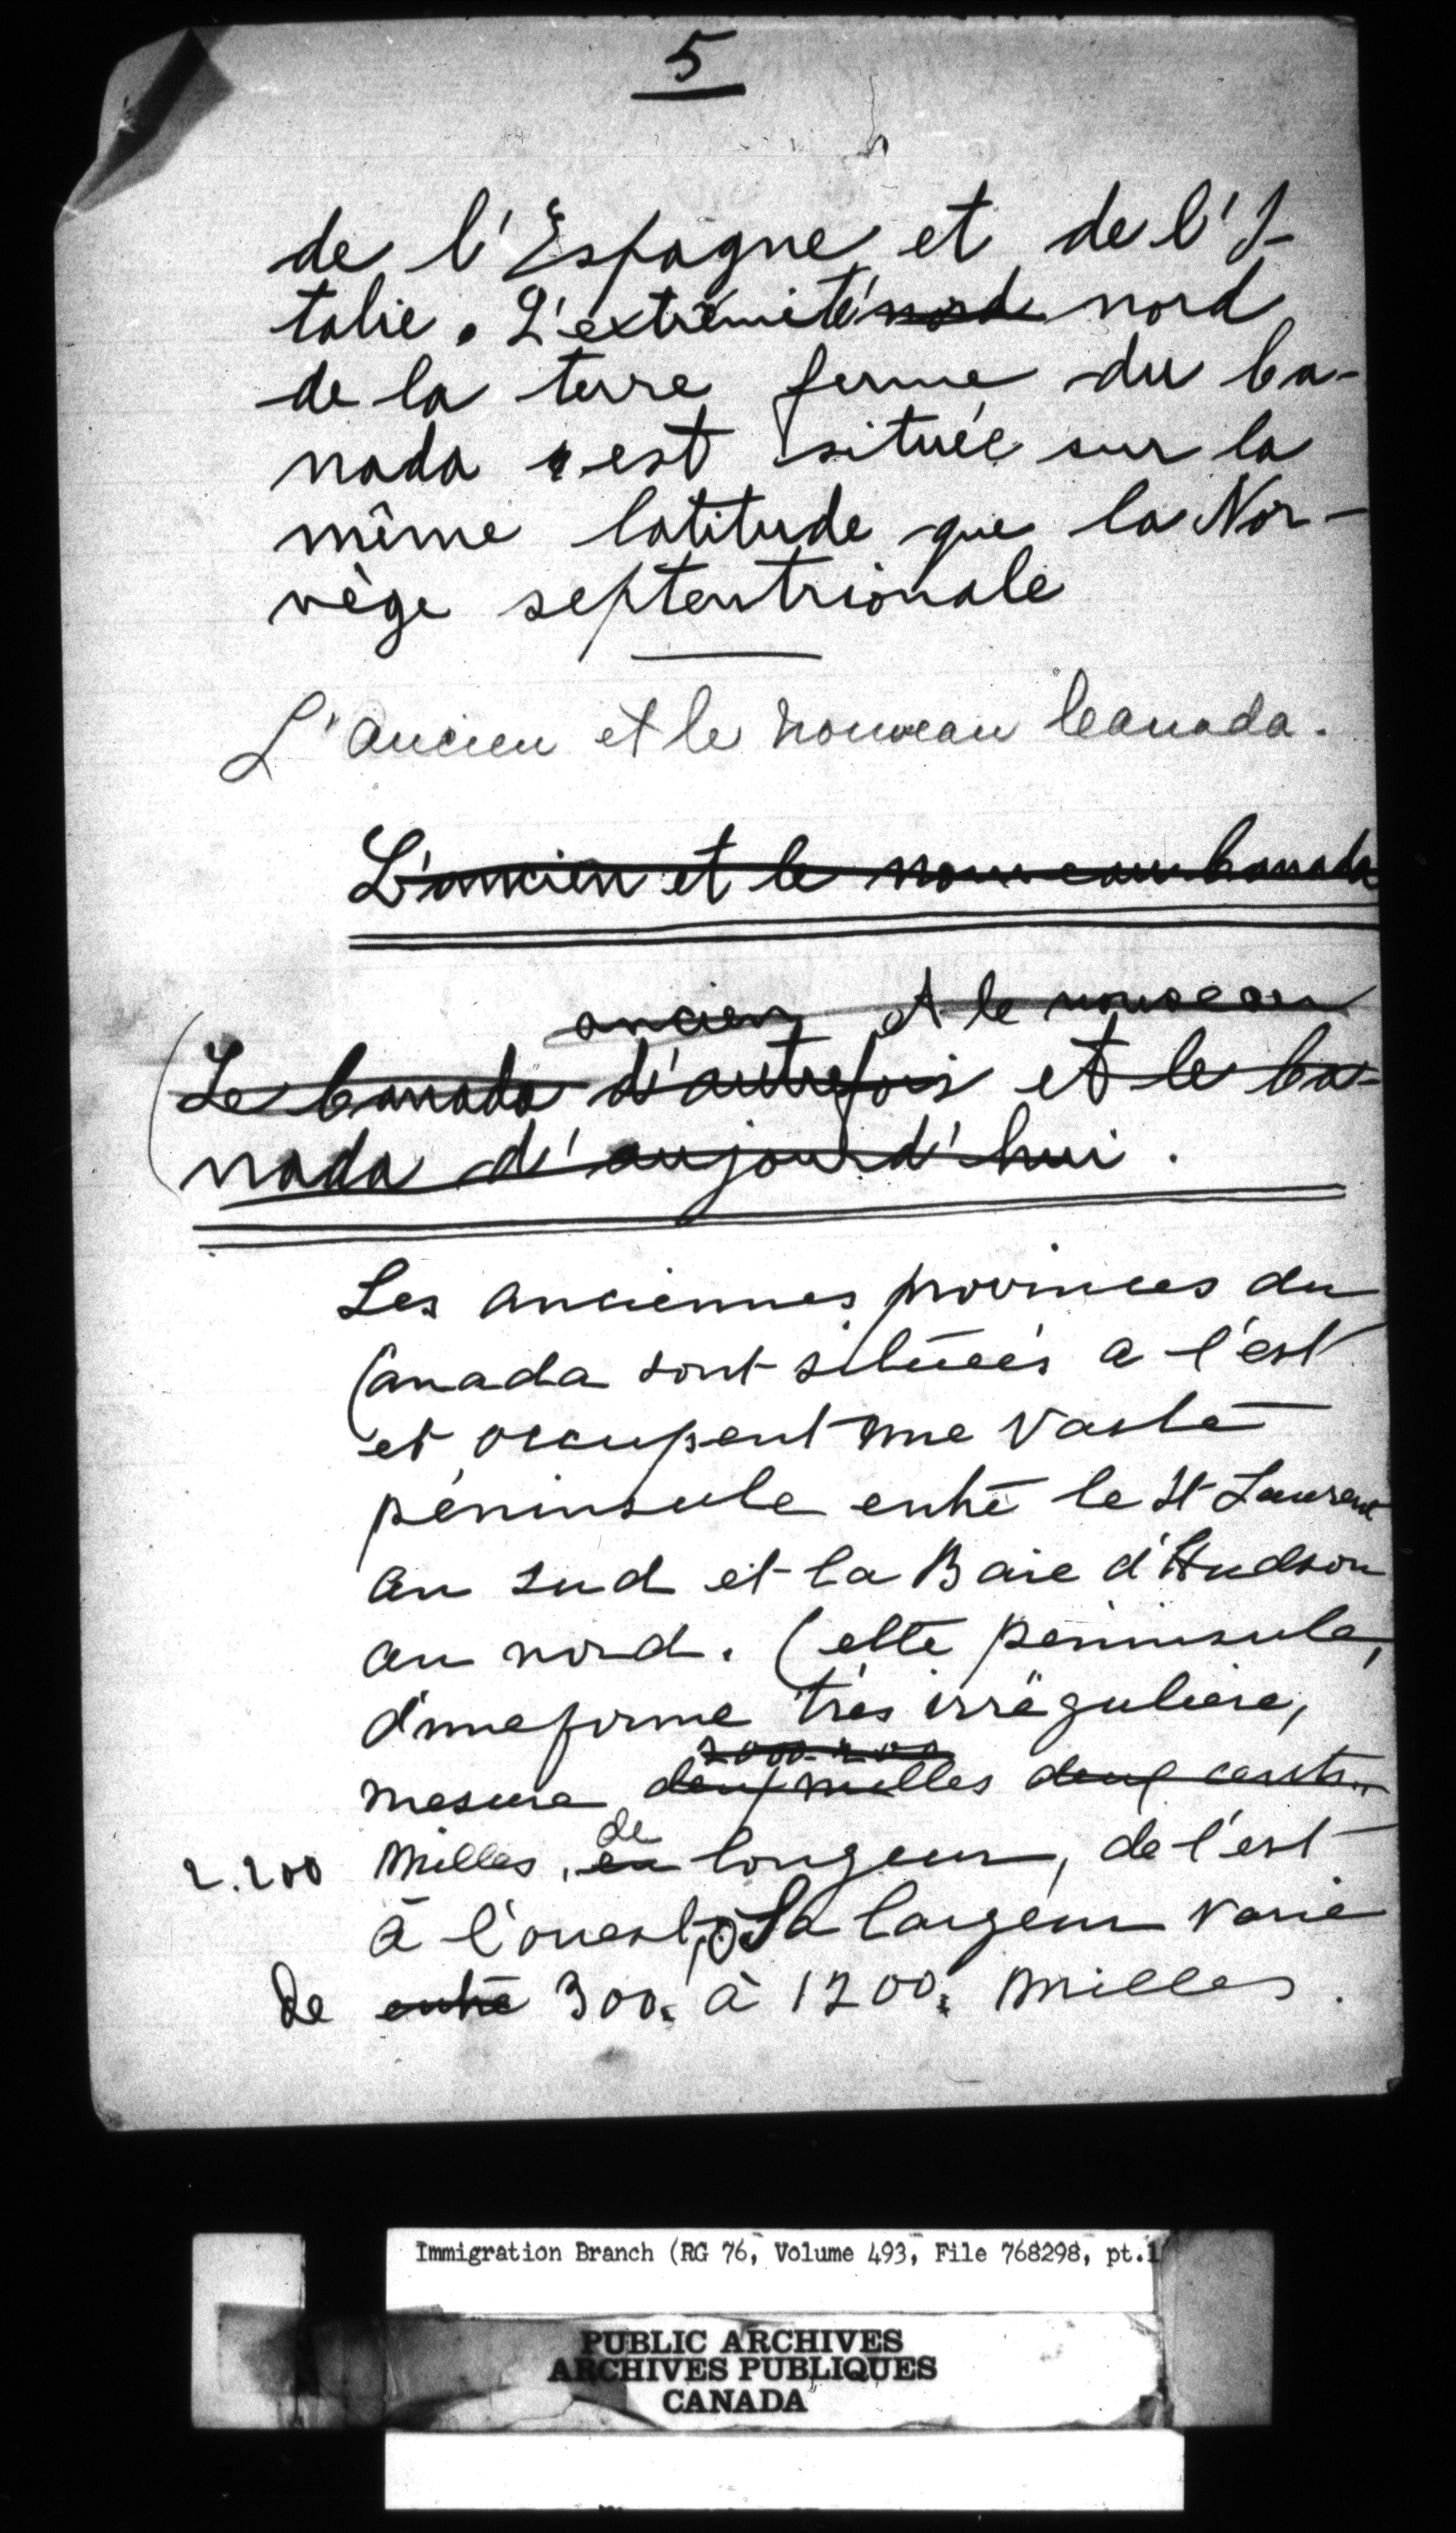 5
de l'Espagne et de l'I-
talie. L'extrémité nord nord
de la terre ferme du Ca-
nada est située sur la
même latitude que la Nor-
vège septentrionale
L'ancien et le nouveau Canada.
L'ancien et le nouveau Canada
ancien et le nouveau
Le Canada d'autrefois et le Ca-
nada d'aujourd'hui.
Les anciennes provinces du
Canada sont situées a l'est
et occupent une vaste
péninsule entre le St Laurent
au sud et la Baie d'Hudson
au nord. Cette péninsule,
d'une forme très irrégulière,
2000.200
mesure deux milles deux cents
de
2.200 milles, en longeur, de l'est
à l'ouest; Sa largeur varie
de entre 300. à 1200. milles.
Immigration Branch (RG 76, Volume 493, File 768298, pt.1
PUBLIC ARCHIVES
ARCHIVES PUBLIQUES
CANADA